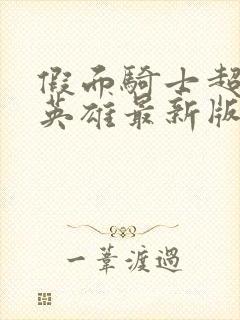 假面騎士超
英雄最新版
一葦渡過